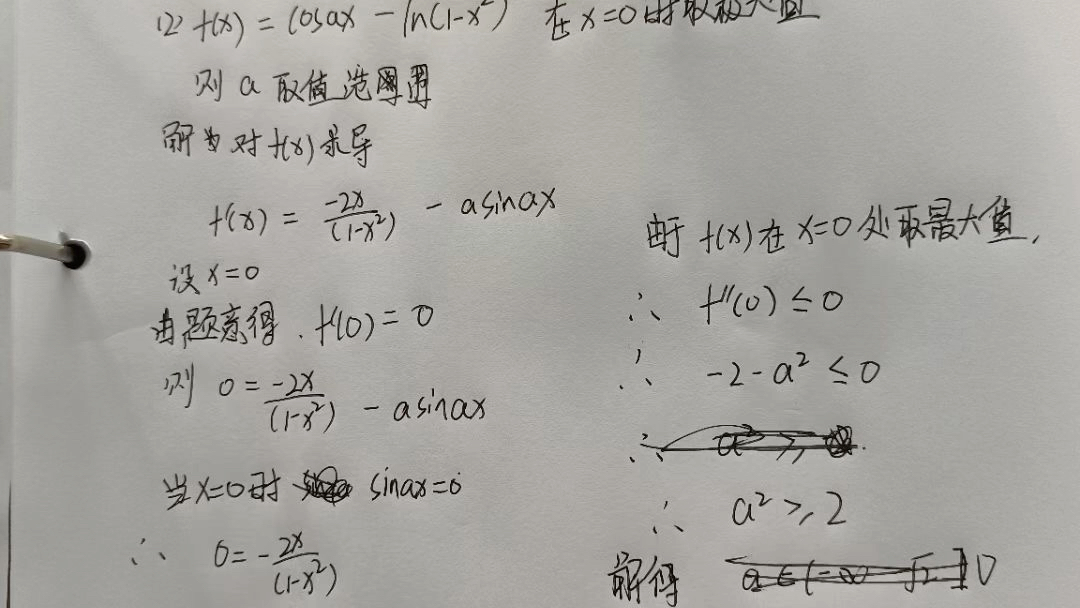 (2) f(x) = cosax - ln(1-x²) 在 x=0 时取极大值
则 a 取值范围
解: 对 f(x) 求导
f'(x) = \frac{-2x}{(1-x²)} - asinax
设 x=0
由题意得. f'(0) = 0
则 0 = \frac{-2x}{(1-x²)} - asinax
当 x=0 时 sinax=0
∴ 0 = -\frac{2x}{(1-x²)}
由于 f(x) 在 x=0 处取最大值,
∴ f''(0) ≤ 0
∴ -2 - a² ≤ 0
∴ a² ≥
∴ a² ≥ 2
解得